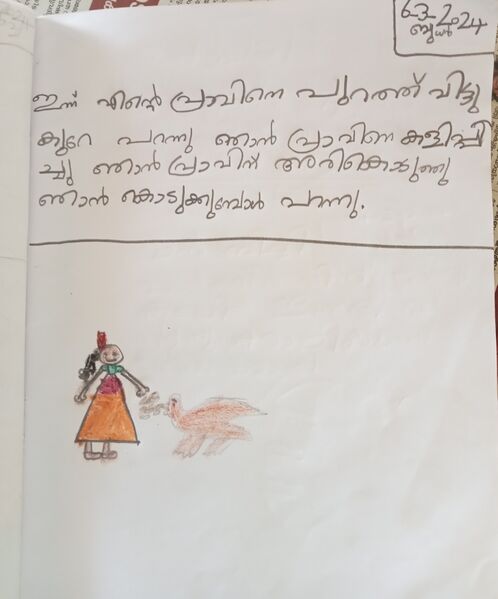 6-3-2024
ബുധൻ
ഇന്ന് എന്റെ പ്രാവിനെ പുറത്ത് വിട്ടു
കുറേ പറന്നു ഞാൻ പ്രാവിനെ കളിപ്പി
ച്ചു ഞാൻ പ്രാവിന് അരികൊടുത്തു
ഞാൻ കൊടുക്കുമ്പോൾ പറന്നു.